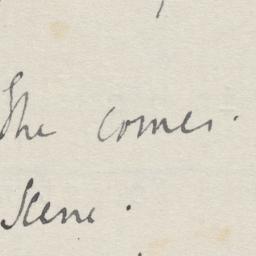 She comes.
Scene.